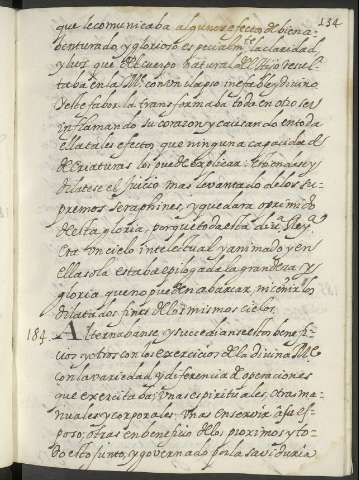 134
que le comunicaba algunos efectos de biena-
benturado, y glorioso especialmte la claridad
y luz que del cuerpo natural del Hijo resul-
taba en la Me. con un ilapso inefable y divino
este fabor la transformaba toda en otro ser
inflamando su corazon y causando en toda
ella tales efectos que ninguna capacidad
de criaturas los puede explicar: Encoxase y
dilatese el juicio mas levantado de los su-
premos seraphines, y quedara oprimido
desta gloria, porque toda esta divina Rey.a
era un cielo intelectual y animado y en
ella sola estaba epilogada la grandeza y
gloria que no pueden abarcar, ni ceñir los
dilatados fines de los mismos cielos.
184. Alternabanse y sucedianse estos benefi-
cios y otros con los exercicios de la divina Me.
con la variedad y diferencia de operaciones
que exercitaba; unas espirituales, otras ma-
nuales y corporales: unas en servir a su es-
poso, otras en beneficio de los proximos y to-
do esto junto, y governado por la savíduria